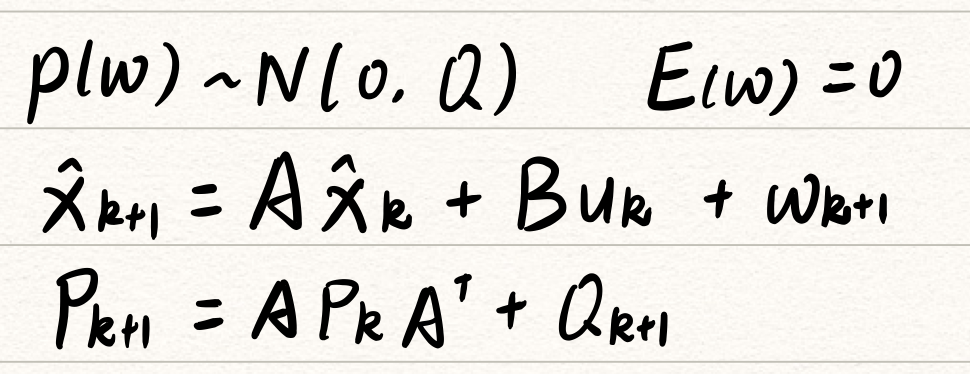 p(w) ~ N(0, Q)    E(w) = 0
x̂ₖ₊₁ = A x̂ₖ + B uₖ + wₖ₊₁
Pₖ₊₁ = A Pₖ Aᵀ + Qₖ₊₁